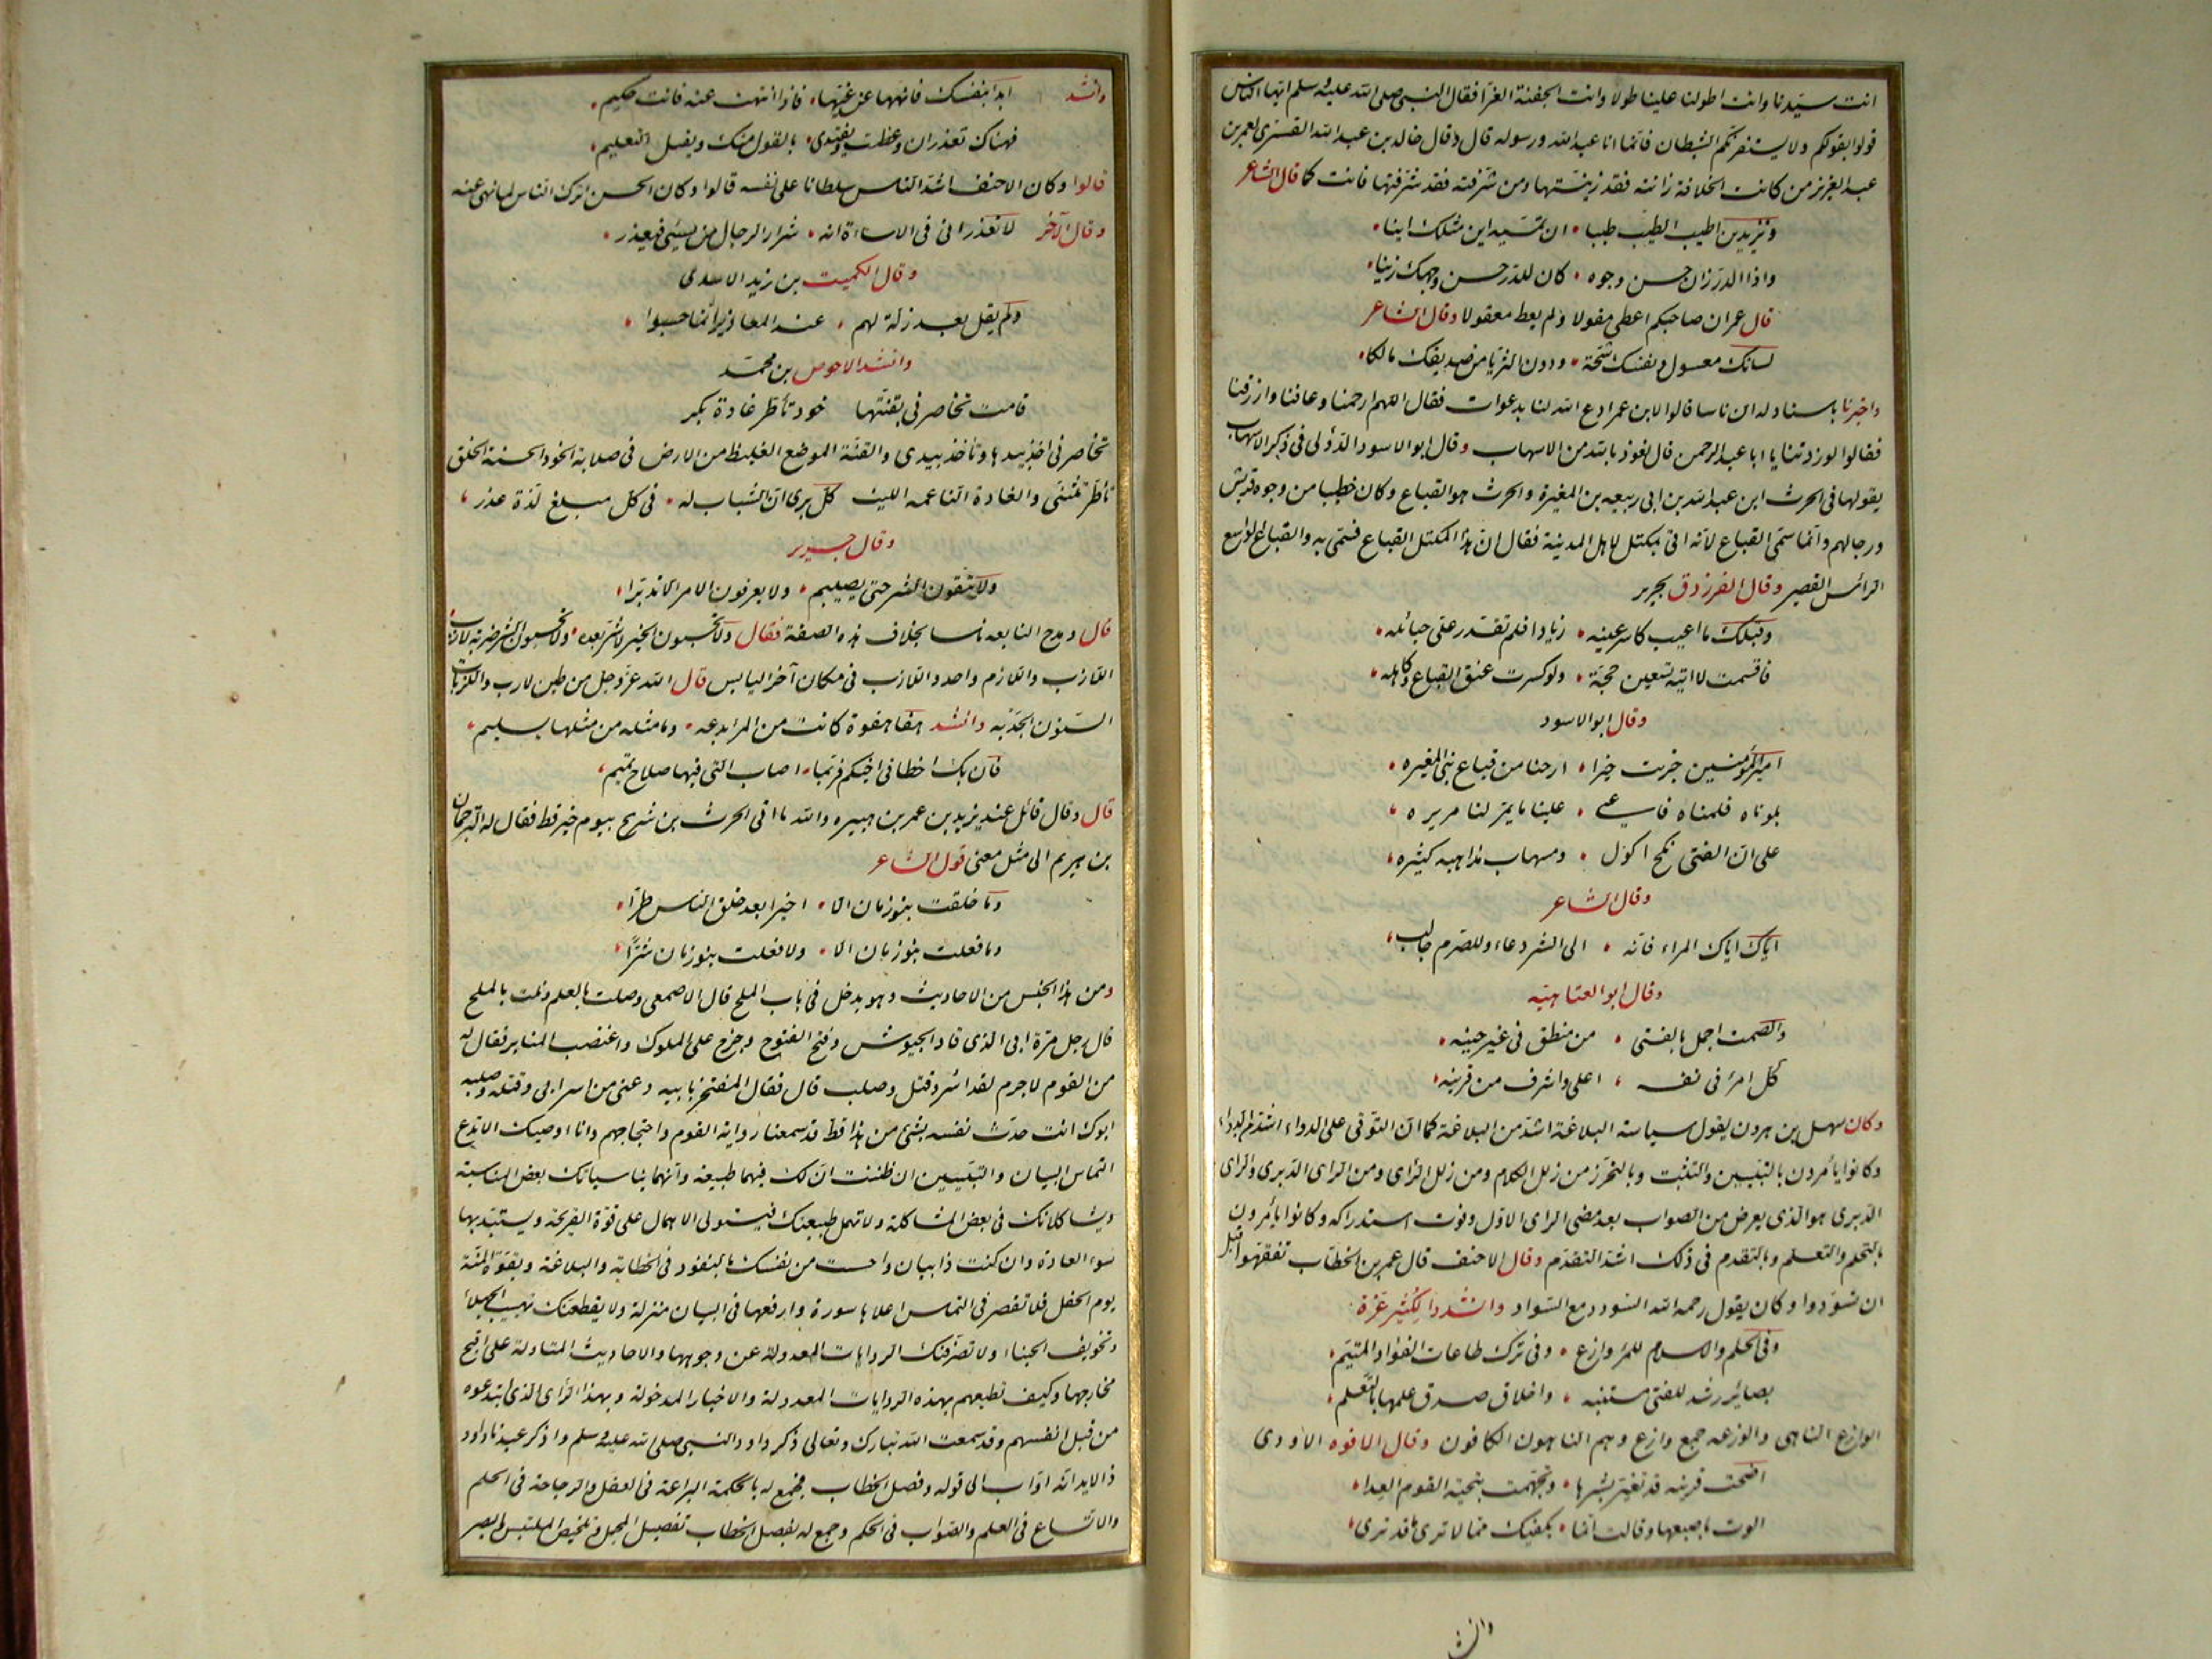 انت سيّدنا وانت اطولنا علينا طولا وانت الجفنة الغرّا فقال النبى صلى الله عليه وسلم ايها الناس
قولوا بقولكم ولا يستفزنكم الشيطان فانما انا عبد الله ورسوله قال وقال خالد بن عبد الله القسرى لعمر بن
عبد العزيز من كانت الخلافة زانته فقد زينتها ومن شرفته فقد شرفتها فانت كما قال الشاعر
وتزيدين اطيب الطيب طيبا ان تمسيه اين مثلك اينا
واذا الدرّ زان حسن وجوه كان للدرّ حسن وجهك زينا
قال عمر ان صاحبكم اعطى مقولا ولم يعط معقولا وقال الشاعر
لسانك معسول ونفسك شحة ودون الثريا من صديقك مالكا
واخبرنا باسناد له ان ناسا قالوا لابن عمر ادع الله لنا بدعوات فقال اللهم ارحمنا وعافنا وارزقنا
فقالوا لو زدتنا يا ابا عبد الرحمن قال نعوذ بالله من الاسهاب وقال ابو الاسود الدؤلى فى ذكر الاسهاب
يقولها فى الحرث ابن عبد الله بن ابى ربيعه بن المغيرة والحرث هو القباع وكان خطيبا من وجوه قريش
ورجالهم وانما سمّى القباع لانه اتى بمكتل لاهل المدينة فقال ان هذا المكتل القباع فسمّى به والقباع الواسع
الرأس القصير وقال الفرزدق لجرير
وقبلك ما اعييت كاسر عينه زيادا فلم تقدر على حبائله
فاقسمت لا اتيه تسعين حجة ولو كسرت عنق القباع وكاهله
وقال ابو الاسود
امير المؤمنين جزيت خيرا ارحنا من قباع بنى المغيره
بلوناه فلمناه فاعيى علينا ما يمرّ لنا مريره
على ان الفتى نكح اكول ومسهاب مذاهبه كثيره
وقال الشاعر
اياك اياك المراء فانه الى الشر دعاء وللصرم جالب
وقال ابو العتاهيه
والصمت اجمل بالفتى من منطق فى غير حينه
كل امرئ فى نفسه اعلى واشرف من قرينه
وكان سهل بن هرون يقول سياسة البلاغة اشدّ من البلاغة كما ان التوقى على الدواء اشد من الدواء
وكانوا يأمرون بالتبيين والتثبت وبالتحرّز من زلل الكلام ومن زلل الرأى ومن الراى الدبرى والراى
الدبرى هو الذى يعرض من الصواب بعد مضى الراى الاول وفوت استدراكه وكانوا يأمرون
بالتحلم والتعلم وبالتقدم فى ذلك اشد التقدّم وقال الاحنف قال عمر بن الخطاب تفقهوا قبل
ان تسوّدوا وكان يقول رحمه الله السودد مع السّواد وانشدوا لكثير عزة
وفى الحلم والاسلام للمرء وازع وفى ترك طاعات الفؤاد المتيّم
بصائر رشد للفتى مستبينه واخلاق صدق علمها بالتّعلم
الوازع الناهى والوزعه جمع وازع وهم الناهون الكافون وقال الافوه الاودى
اضحت قرينه قد تغير بشرها وتجهمت بتحية القوم العدا
الوت باصبعها وقالت انما يكفيك مما لا ترى ما قد ترى
وانشد
وانشد ابدا بنفسك فانهها عن غيّها فاذا انتهت عنه فانت حكيم
فهناك تعذر ان وعظت ويقتدى بالقول منك ويقبل التعليم
قالوا وكان الاحنف اشدّ الناس سلطانا على نفسه قالوا وكان الحسن اترك الناس لما نهى عنه
وقال الآخر لا تعذرانى فى الاساءة انه شرار الرجال من يسيئ فيعذر
وقال الكميت بن زيد الاسدى
ولم يقل بعد زلة لهم عند المعاذير انما حسبوا
وانشد الاحوص بن محمد
قامت تخاصرنى بقنتها خود تأطر غادة بكر
تخاصرنى اخذ بيدها وتأخذ بيدى والقنّة الموضع الغليظ من الارض فى صلابة الخود الحسنة الخلق
تأطر تتثنى والغادة الناعمه اللينه كل يرى ان الشباب له فى كل مبلغ لذة عذر
وقال جرير
ولا تتقون الشر حتى يصيبكم ولا تعرفون الامر الا تدبّرا
قال ومدح النابغه ناسا بخلاف هذه الصفة فقال ولا يحسبون الخير لا شرّ بعده ولا يحسبون الشر ضربة لازب
اللازب واللازم واحد واللازب فى مكان آخر اليابس قال الله عزّ وجل من طين لازب واللزبات
السّنون الجدبه وانشد هفا هفوة كانت من المرء بدعه وما مثله من مثلها بسليم
فان يك اخطا فى اخيكم فربّما اصاب التى فيها صلاح تميم
قال وقال قائل عند يزيد بن عمر بن هبيره والله ما اتى الحرث بن شريح بيوم خير قط فقال له الترجمان
بن هريم الى مثل معنى قول الشاعر
وما خلقت بنو زمان الا اخيرا بعد خلق الناس طرّا
وما فعلت بنو زبان الا ولا فعلت بنو زبان شرّا
ومن هذا الجنس من الاحاديث وهو يدخل فى باب الملح قال الاصمعى وصلت بالعلم ونلت بالملح
قال رجل مرّة ابى الذى قاد الجيوش وفتح الفتوح وخرج على الملوك واغتصب المنابر فقال له
من القوم لا جرم لقد اسر وقتل وصلب قال فقال المفتخر بابيه دعنى من اسر ابى وقتله وصلبه
ابوك انت حدّث نفسه بشئ من هذا قط قد سمعنا رواية القوم واحتجاجهم وانا اوصيك الا تدع
التماس البيان والتبيين ان ظننت ان لك فيهما طبيعة وانهما يناسبانك بعض المناسبة
ويشاكلانك فى بعض المشاكلة ولا تهمل طبيعتك فيستولى الاهمال على قوّة القريحة ويستبدّ بها
سوء العادة وان كنت ذا بيان واحسست من نفسك بالنفوذ فى الخطابة والبلاغة وبقوّة المنّة
يوم الحفل فلا تقصر فى التماس اعلاها سورة وارفعها فى البيان منزلة ولا يقطعنك تهييب الجهلاء
وتخويف الجبناء ولا تصرّفنك الروايات المعدولة عن وجوهها والاحاديث المتناولة على اقبح
مخارجها وكيف تطيعهم بهذه الروايات المعدولة والاخبار المدخولة وبهذا الراى الذى ابتدعوه
من قبل انفسهم وقد سمعت الله تبارك وتعالى ذكر داود النبى صلى الله عليه وسلم واذكر عبدنا داود
ذا الايد انه اواب الى قوله وفصل الخطاب فجمع له بالحكمة البراعة فى العقل والرجاحة فى الحلم
والاتساع فى العلم والصواب فى الحكم وجمع له بفصل الخطاب تفصيل المجمل وتلخيص الملتبس والبصر